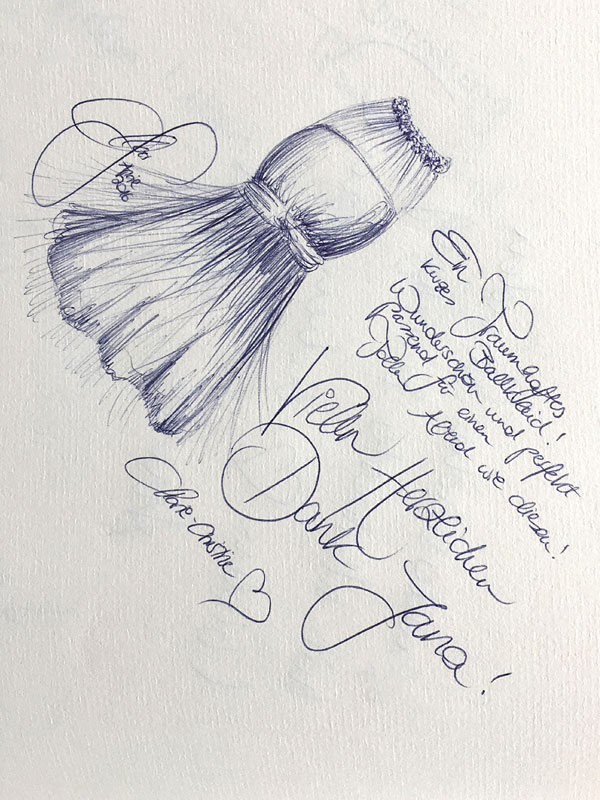 Ein Traumhaftes
kurzes Ballkleid!
Wunderschön und perfekt
passend für einen
tollen Abend wie diesen!
Vielen Herzlichen
Dank Jana!
Clare-Christine